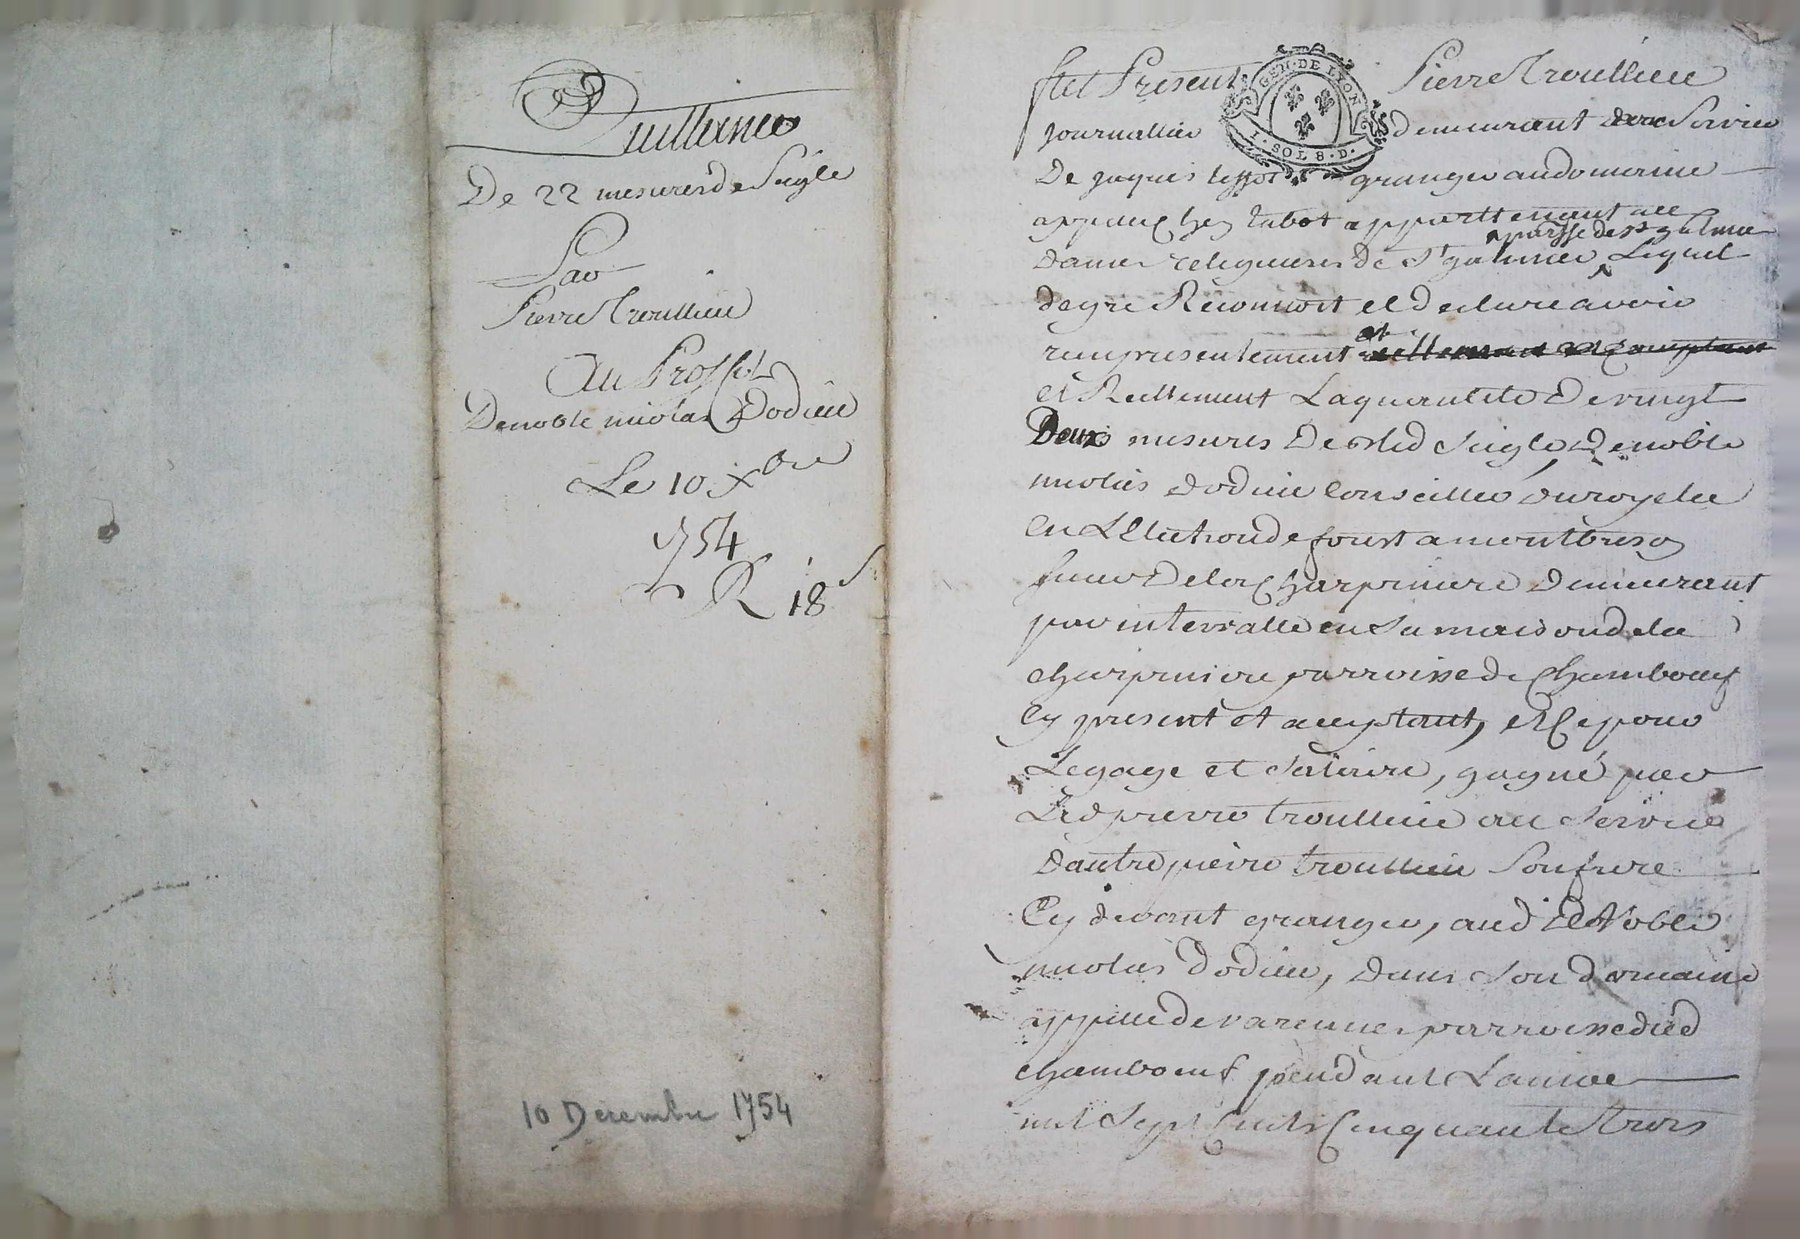 Quittance
De 22 mesures de Seigle
Par
Pierre Troullieu
Au Proffit
De noble nicolas Dodieu
Le 10 Xbre
1754
R 18 s
10 Décembre 1754
GEN. DE LYON
1. SOL 8. D.
fut Present Pierre Troullieu
journallier demeurant au Service
De jaques granger au domaine
appellé chez tabot appartenant aux
parsse de st galmier
dames religieuses de St galmier, Lequel
de gré Reconnoit et declare avoir
reçu presentement et
et Reellement La quantité De vingt
Deux mesures De bled Seigle De noble
nicolas dodieu Conseiller du roy elu
En L'Election de forest a montbrison
sieur De la Charpiniere Demeurant
par intervalle en Sa maison de la
charpiniere parroisse de Chambœuf
Cy present et acceptant, et Ce pour
Le gage et Salaire, gagné par
Led pierre troullieu au Service
d'autre pierre troullieu Son frere
Cy devant granger, aud Sr Noble
nicolas dodieu, dans Son domaine
appellé de varenne parroisse dud
chambœuf pendant L'année
mil Sept Cents Cinquante trois